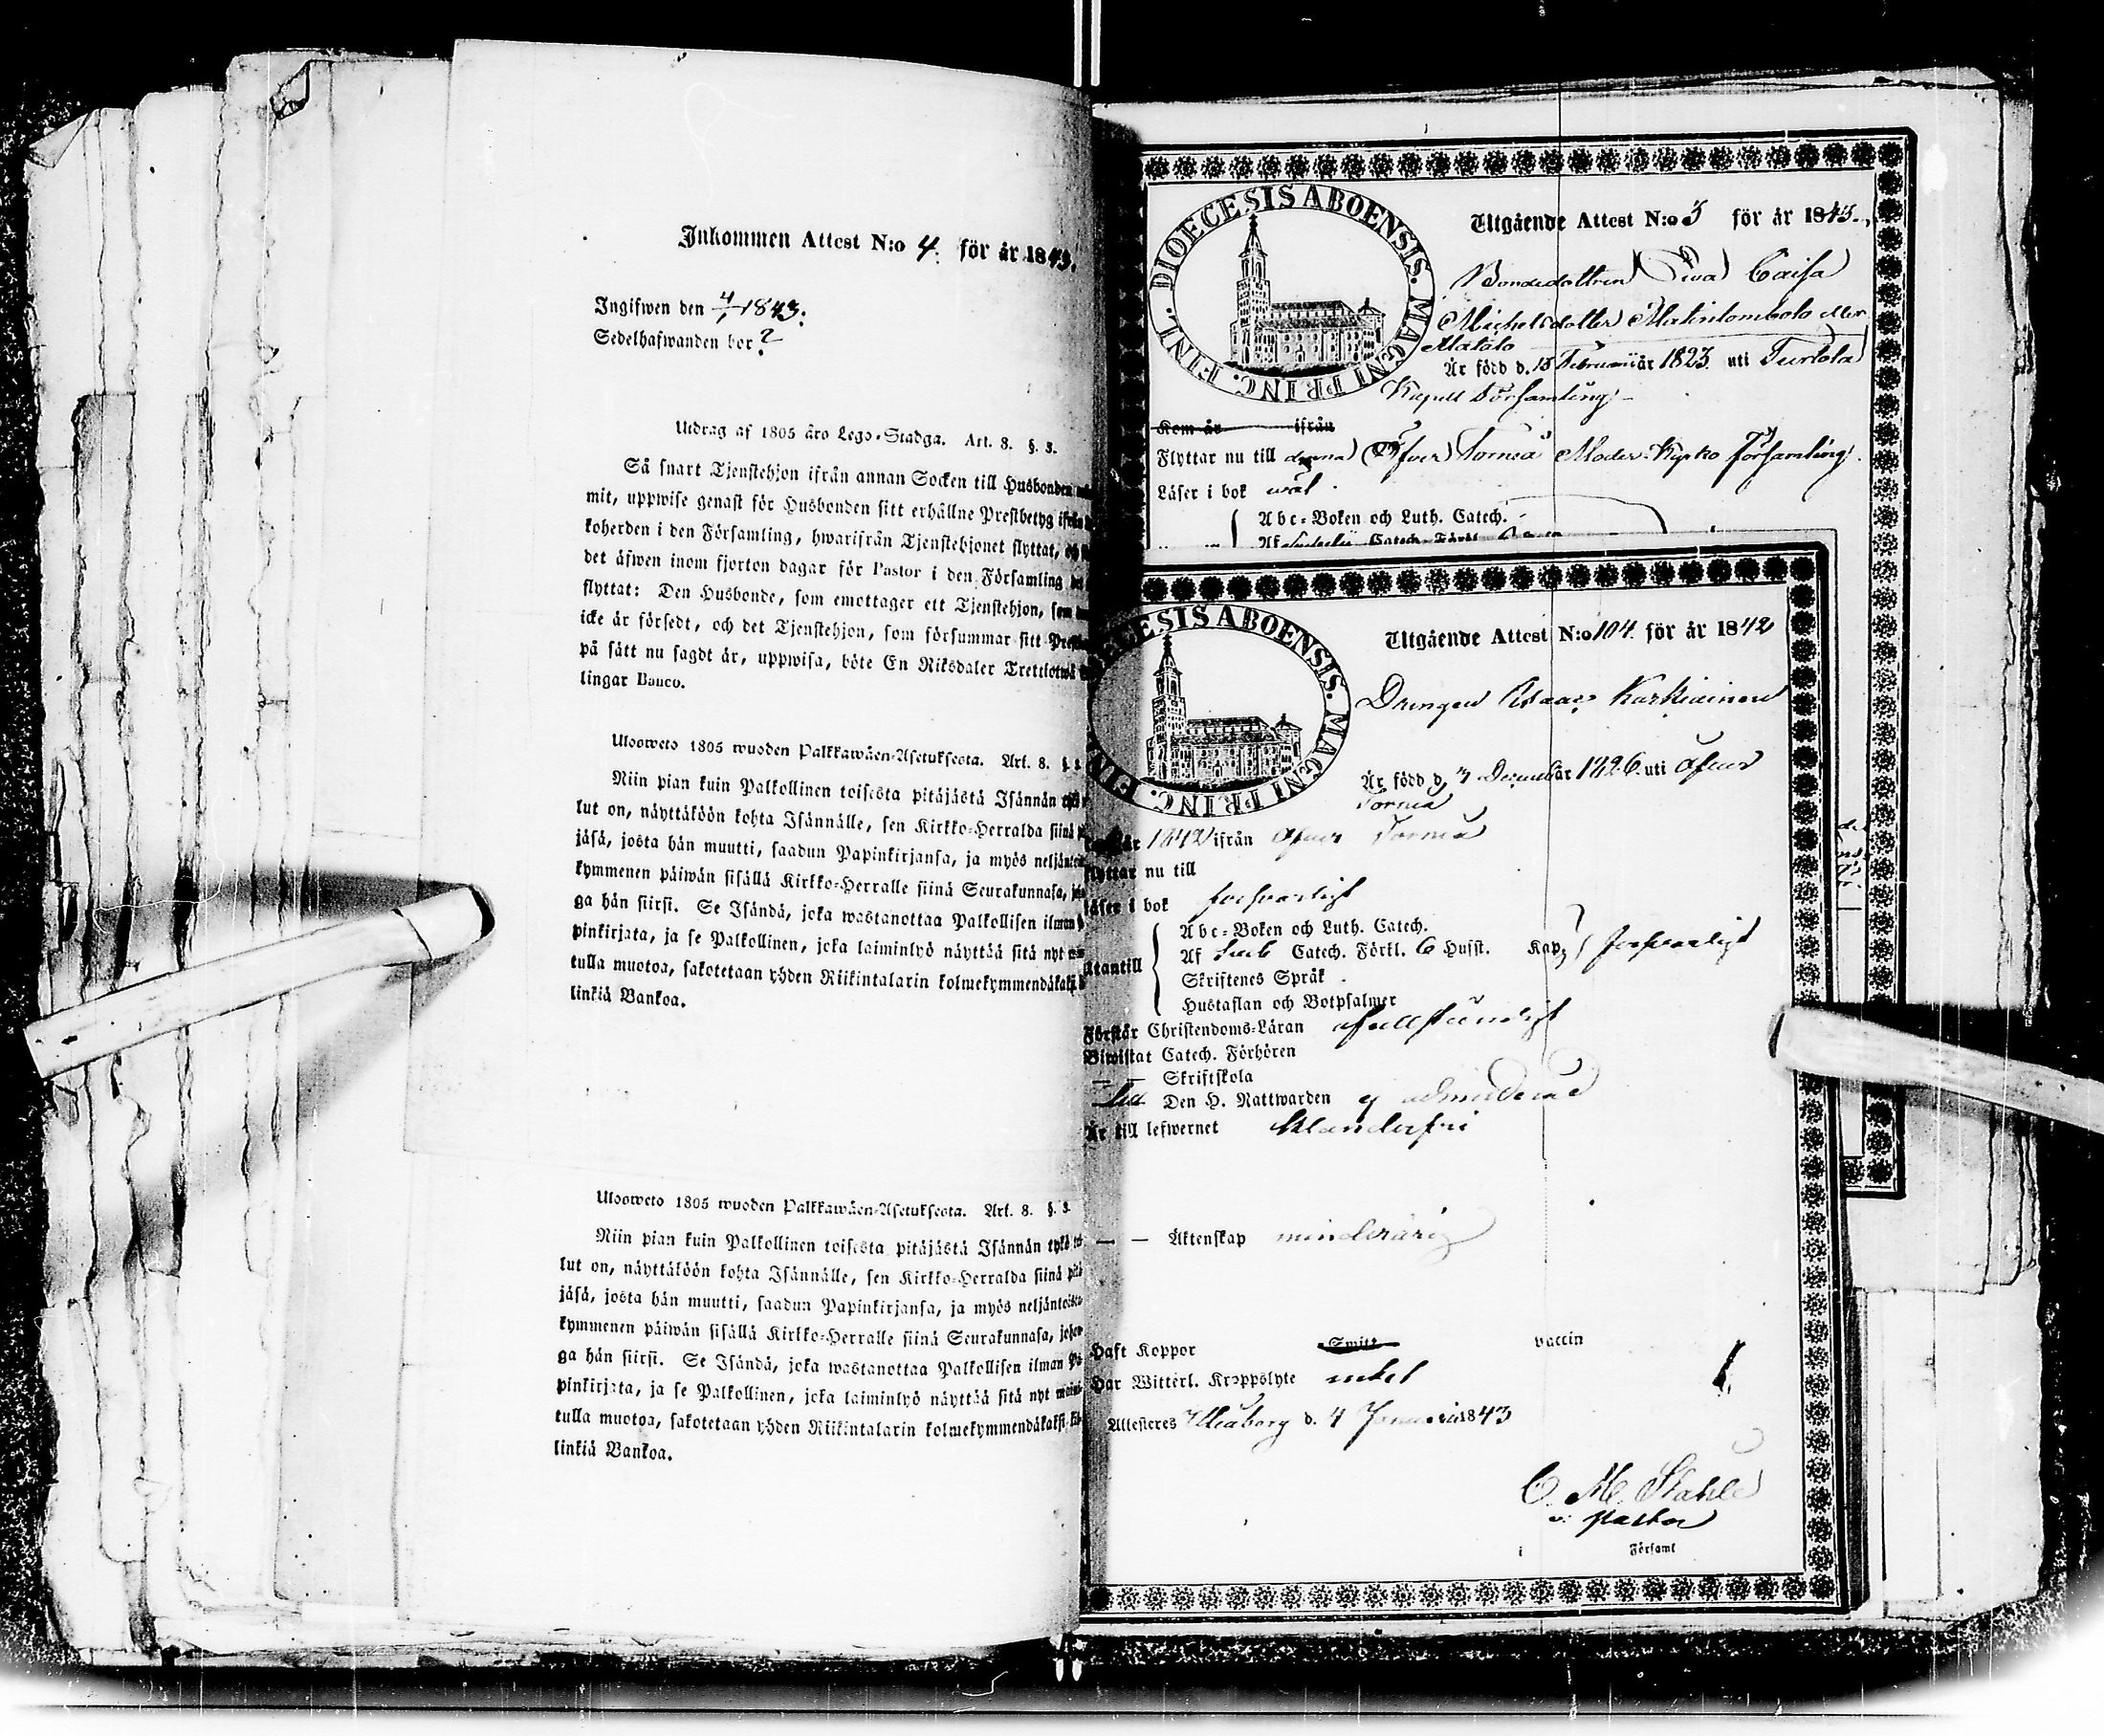 Inkommen Attest N:o 4. för år 1843.
Ingifwen den 4/1 1843.
Sedelhafwanden bor ?
Utdrag af 1805 års Lego-Stadga. Art. 8. §. 3.
Så snart Tjenstehjon ifrån annan Socken till Husbonden
mit, uppwise genast för Husbonden sitt erhållne Prestbetyg ifrån
koherden i den Församling, hwarifrån Tjenstehjonet flyttat, och
det äfwen inom fjorton dagar för Pastor i den Församling det
flyttat: Den Husbonde, som emottager ett Tjenstehjon, som
icke är försedt, och det Tjenstehjon, som försummar sitt
på sått nu sagdt är, uppwisa, böte En Riksdaler Trettiotwå
lingar Banco.
Ulosweto 1805 wuoden Palkkawäen-Asetuksesta. Art. 8. §. 3.
Niin pian kuin Palkollinen toisesta pitäjästä Isännän tykö
lut on, näyttäköön kohta Isännälle, sen Kirkko-Herralda siinä
jäsä, josta hän muutti, saadun Papinkirjansa, ja myös neljäntoista
kymmenen päiwän sisällä Kirkko-Herralle siinä Seurakunnasa,
ga hän siirsi. Se Isändä, joka wastanottaa Palkollisen ilman
pinkirjata, ja se Palkollinen, joka laiminlyö näyttää sitä nyt
tulla muotoa, sakotetaan yhden Riikintalarin kolmekymmendäkaksi
linkiä Bankoa.
Ulosweto 1805 wuoden Palkkawäen-Asetuksesta. Art. 8. §. 3.
Niin pian kuin Palkollinen toisesta pitäjästä Isännän tykö
lut on, näyttäköön kohta Isännälle, sen Kirkko-Herralda siinä pitä
jäsä, josta hän muutti, saadun Papinkirjansa, ja myös neljäntoista
kymmenen päiwän sisällä Kirkko-Herralle siinä Seurakunnasa, johon
ga hän siirsi. Se Isändä, joka wastanottaa Palkollisen ilman Pa
pinkirjata, ja se Palkollinen, joka laiminlyö näyttää sitä nyt
tulla muotoa, sakotetaan yhden Riikintalarin kolmekymmendäkaksi
linkiä Bankoa.
DIOECESIS ABOENSIS. MAGNI PRINC. FINL.
Utgående Attest N:o 3 för år 1843.
Bondedottren Eva Caisa
Michelsdotter Matintombolo eller
Matalo
Är född d. 15 Februarii år 1823 uti Turtola
Kapell Församling
Kom år ifrån
Flyttar nu till Öfver Torneå Moder-Kyrko församling.
Läser i bok wäl
Abc-Boken och Luth. Catech.
Catech. Förkl.
DIOECESIS ABOENSIS. MAGNI PRINC. FINL.
Utgående Attest N:o 104 för år 1842
Drengen Isaac Karkiainen
Är född d. December år 1826 uti Öfver
Torneå
år 1842 ifrån Öfver Torneå
Flyttar nu till
Läser i bok försvarligt
Abc-Boken och Luth. Catech.
Utantill Af Catech. Förkl. 6 Hufst. Kap. försvarligt
Skriftenes Språk
Hustaflan och Botpsalmer
Förstår Christendoms-Läran ofullständigt
Biwistat Catech. Förhören
Skriftskola
Den H. Nattwarden ej admitterad
Är till lefwernet klanderfri
— — Äktenskap minderårig
Haft Koppor Smitt vaccin
Har Witterl. Kroppslyte intet
Attesteres Uleåborg d. 4 Januarii 1843
C. M. Stahle
v: Pastor
Församl